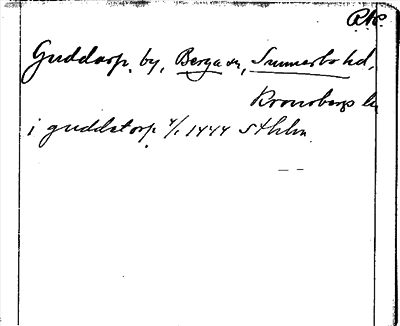 RAP
Guddarp, by, Berga sn, Sunnerbo hd,
Kronobergs l.
i guddetorp 4/1 1444 Sthlm